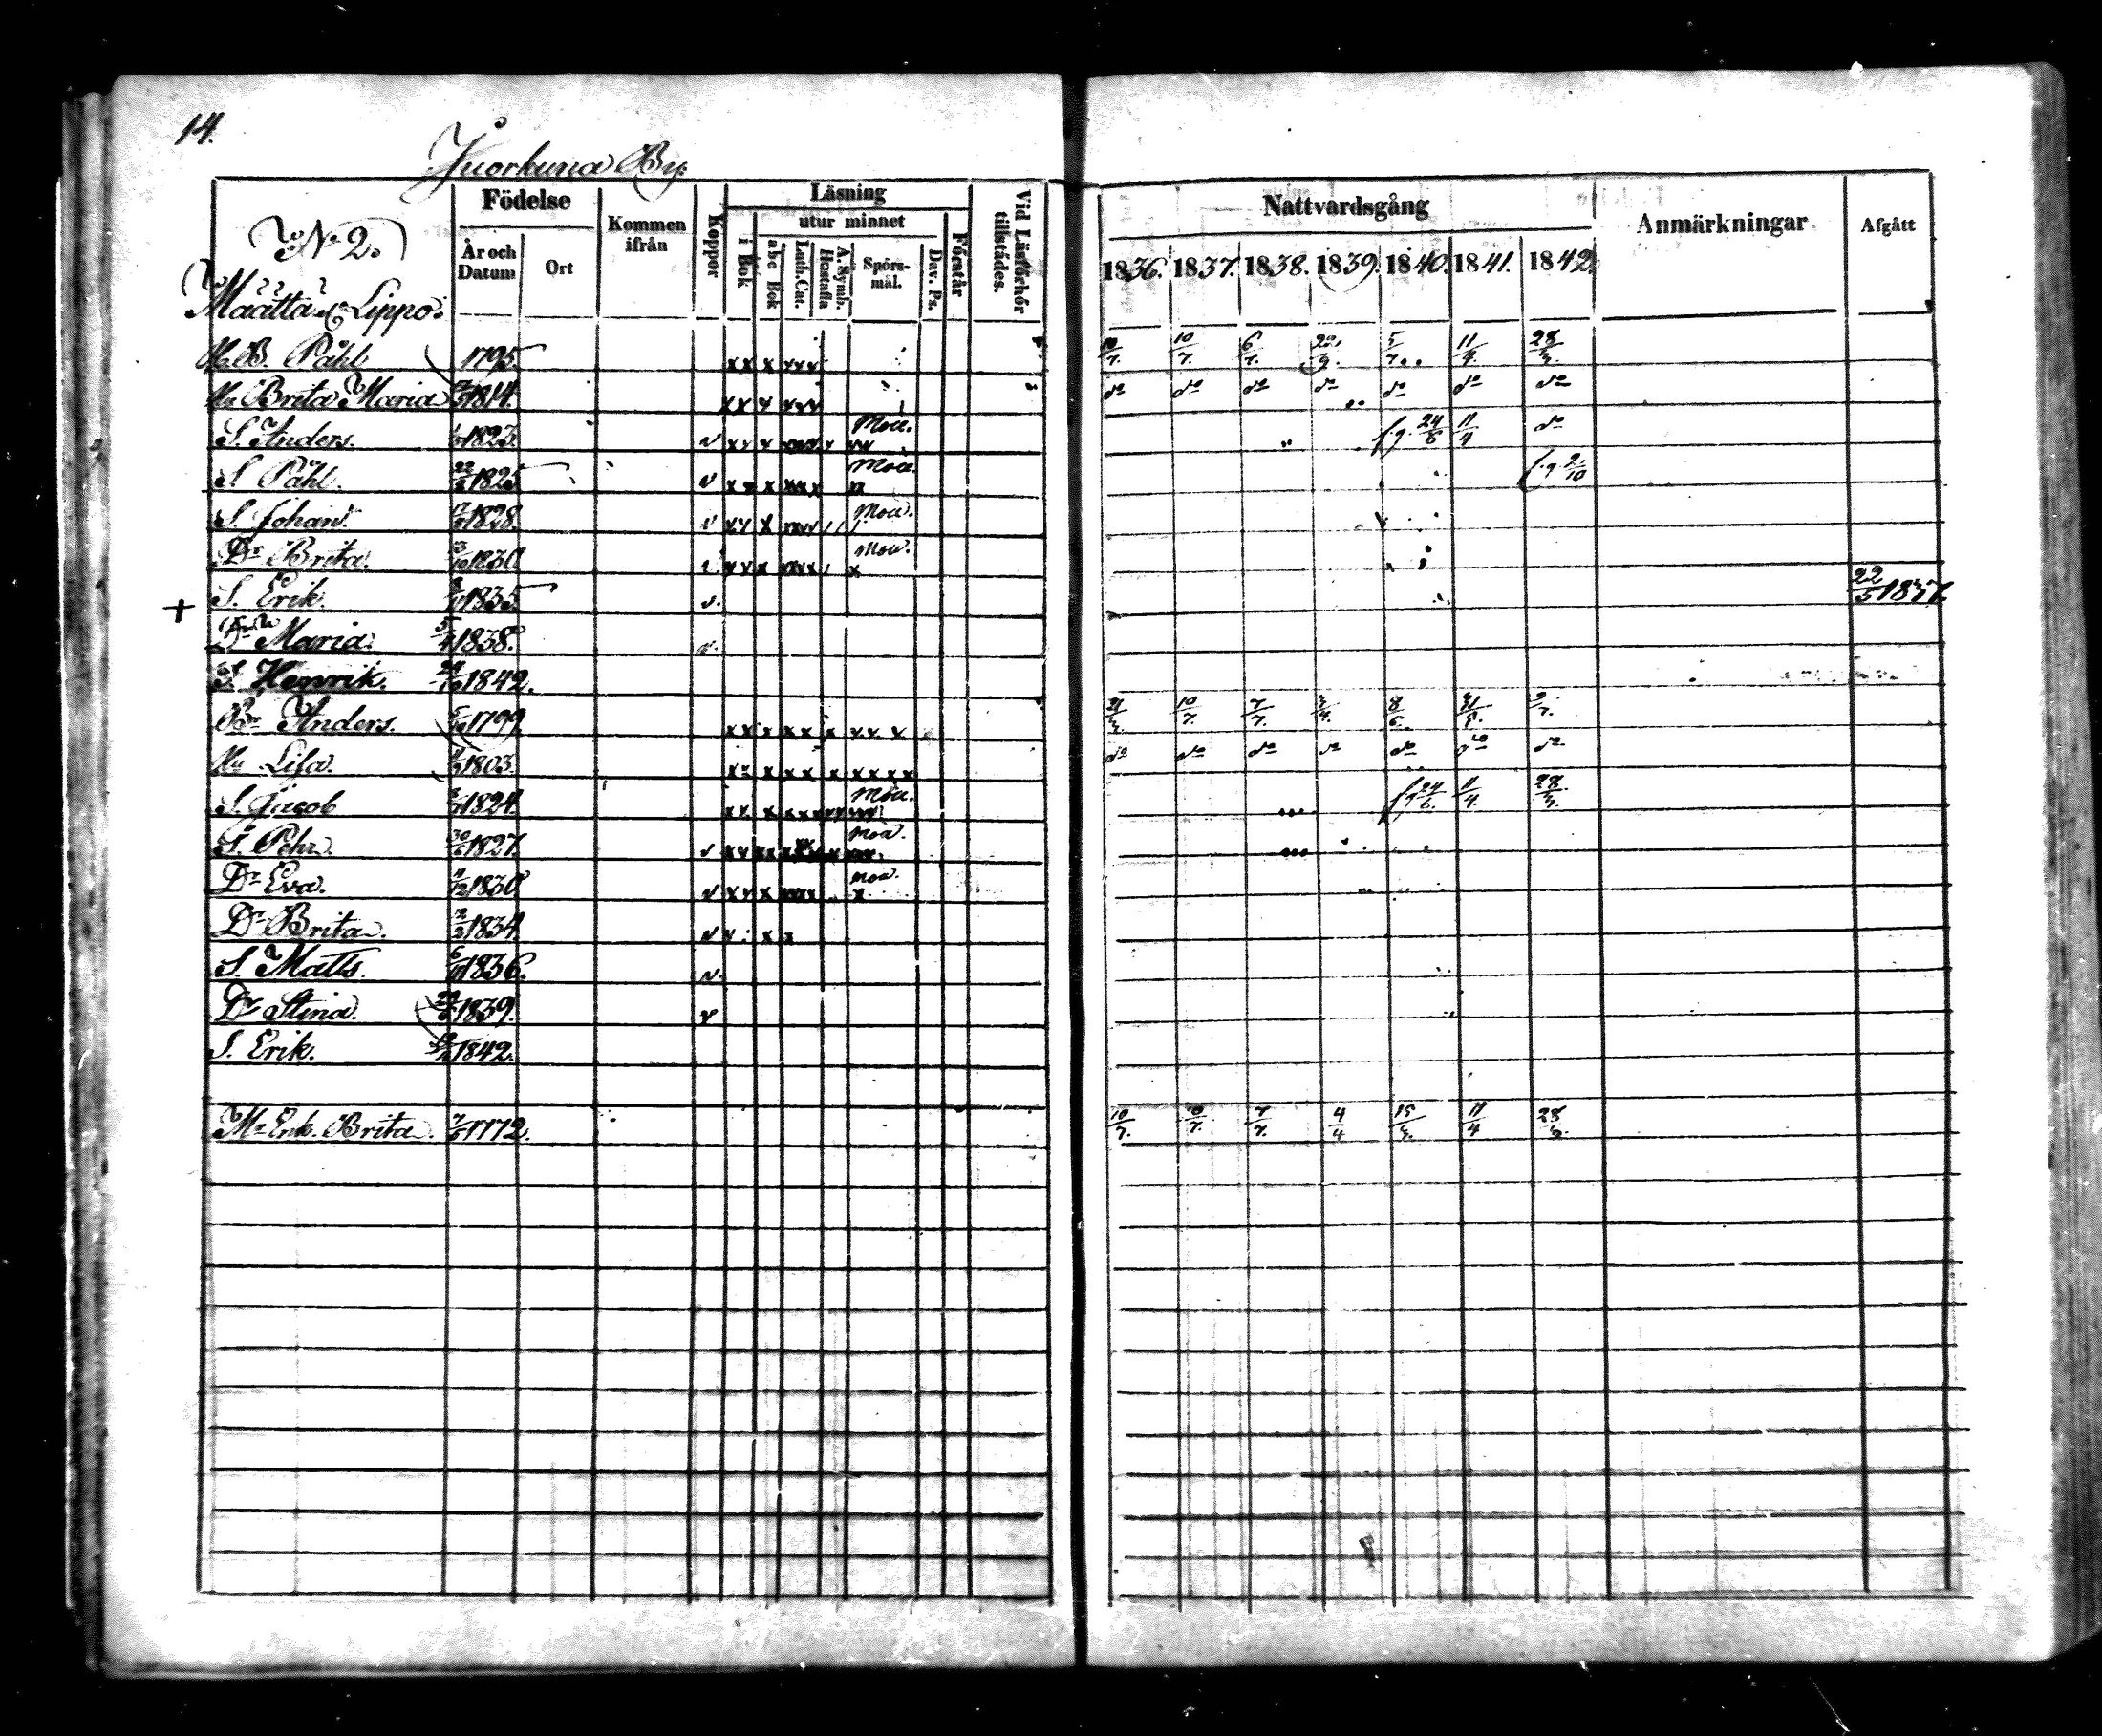 14.
Juorkuna By.
No 2.
Määttä & Lippo.
Födelse
År och Datum
Ort
Kommen ifrån
Koppor
Läsning
i Bok
utur minnet
abc Bok
Luth. Cat.
A. Symb. Hustafla
Spörs-mål.
Dav. Ps.
Förstår
Vid Läsförhör tillstädes.
Nattvardsgång
1836. 1837. 1838. 1839. 1840. 1841. 1842.
Anmärkningar
Afgått
B. Påhl 1795 10/7. 10/7. 6/7. 5/7. 11/4 28/3.
Hu Brita Maria 1814. do do do do do do do
S. Anders. 1823. Moa. f.g. 24/6 11/4 do
S. Påhl. 22 1825 Moa. f.g. 2/10
S. Johan. 17 1828. Moa.
Dr Brita. 3/10 1830 Moa.
+ S. Erik. 1835 22/5 1837.
Dr Maria. 5/4 1838.
S. Henrik. 24/10 1842.
Br Anders. 1799. 10/7. 7/7. 8/6. 2/7.
Hu Lisa. 1803. do do do do do do do
S. Jacob 1824. Moa. f.g. 24/6. 11/4. 28/3.
S. Pehr. 30 1827. Moa.
Dr Eva. 11/12 1830 Moa.
Dr Brita. 12 1834.
S. Matts. 6/11 1836.
Dr Stina. 1839.
S. Erik. 1842.
Mr Enk. Brita. 7/5 1772. 10/7. 10/7. 7/7. 4/4 15/3. 11/4 28/3.